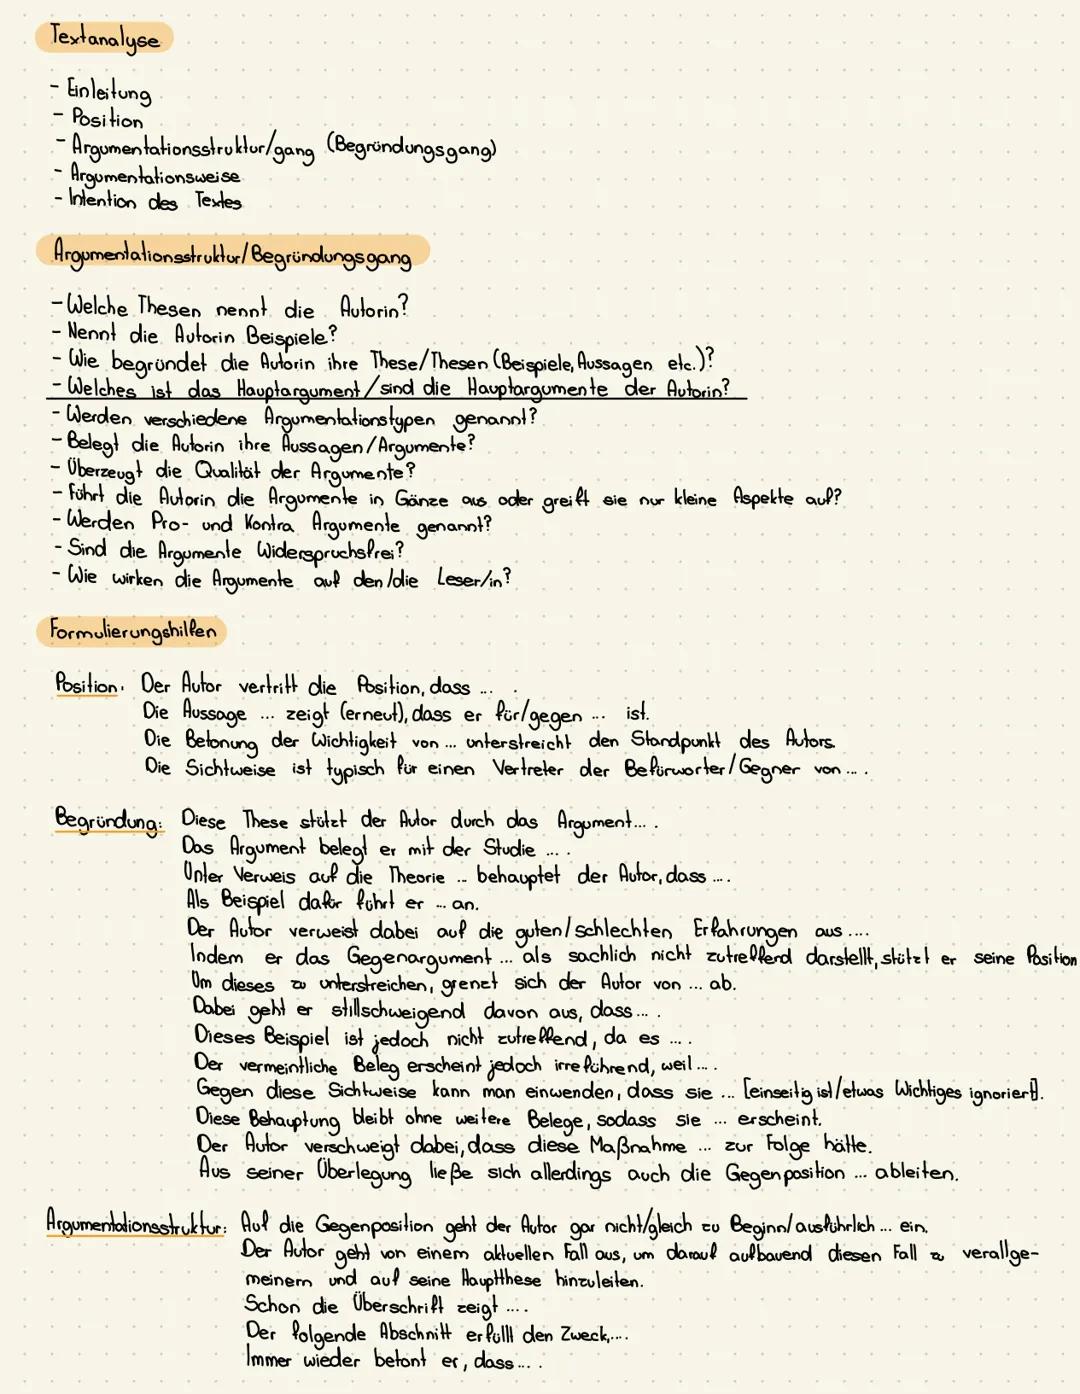 Textanalyse
- Einleitung
- Position
- Argumentationsstruktur/gang (Begründungsgang)
- Argumentationsweise
- Intention des Textes
Argumentationsstruktur/Begründungsgang
- Welche Thesen nennt die Autorin?
- Nennt die Autorin Beispiele?
- Wie begründet die Autorin ihre These/Thesen (Beispiele, Aussagen etc.)?
- Welches ist das Hauptargument/sind die Hauptargumente der Autorin?
- Werden verschiedene Argumentationstypen genannt?
- Belegt die Autorin ihre Aussagen/Argumente?
- Überzeugt die Qualität der Argumente?
- Führt die Autorin die Argumente in Gänze aus oder greift sie nur kleine Aspekte auf?
- Werden Pro- und Kontra Argumente genannt?
- Sind die Argumente Widerspruchsfrei?
- Wie wirken die Argumente auf den/die Leser/in?
Formulierungshilfen
Position: Der Autor vertritt die Position, dass ... .
Die Aussage ... zeigt (erneut), dass er für/gegen ... ist.
Die Betonung der Wichtigkeit von ... unterstreicht den Standpunkt des Autors.
Die Sichtweise ist typisch für einen Vertreter der Befürworter/Gegner von ... .
Begründung: Diese These stützt der Autor durch das Argument... .
Das Argument belegt er mit der Studie ... .
Unter Verweis auf die Theorie ... behauptet der Autor, dass ... .
Als Beispiel dafür führt er ... an.
Der Autor verweist dabei auf die guten/schlechten Erfahrungen aus ....
Indem er das Gegenargument ... als sachlich nicht zutreffend darstellt, stützt er seine Position
Um dieses zu unterstreichen, grenzt sich der Autor von ... ab.
Dabei geht er stillschweigend davon aus, dass ... .
Dieses Beispiel ist jedoch nicht zutreffend, da es ... .
Der vermeintliche Beleg erscheint jedoch irreführend, weil ... .
Gegen diese Sichtweise kann man einwenden, dass sie ... [einseitig ist/etwas Wichtiges ignoriert].
Diese Behauptung bleibt ohne weitere Belege, sodass sie ... erscheint.
Der Autor verschweigt dabei, dass diese Maßnahme ... zur Folge hätte.
Aus seiner Überlegung ließe sich allerdings auch die Gegenposition ... ableiten.
Argumentationsstruktur: Auf die Gegenposition geht der Autor gar nicht/gleich zu Beginn/ausführlich ... ein.
Der Autor geht von einem aktuellen Fall aus, um darauf aufbauend diesen Fall zu verallge-
meinern und auf seine Hauptthese hinzuleiten.
Schon die Überschrift zeigt ... .
Der folgende Abschnitt erfüllt den Zweck, ... .
Immer wieder betont er, dass ... .